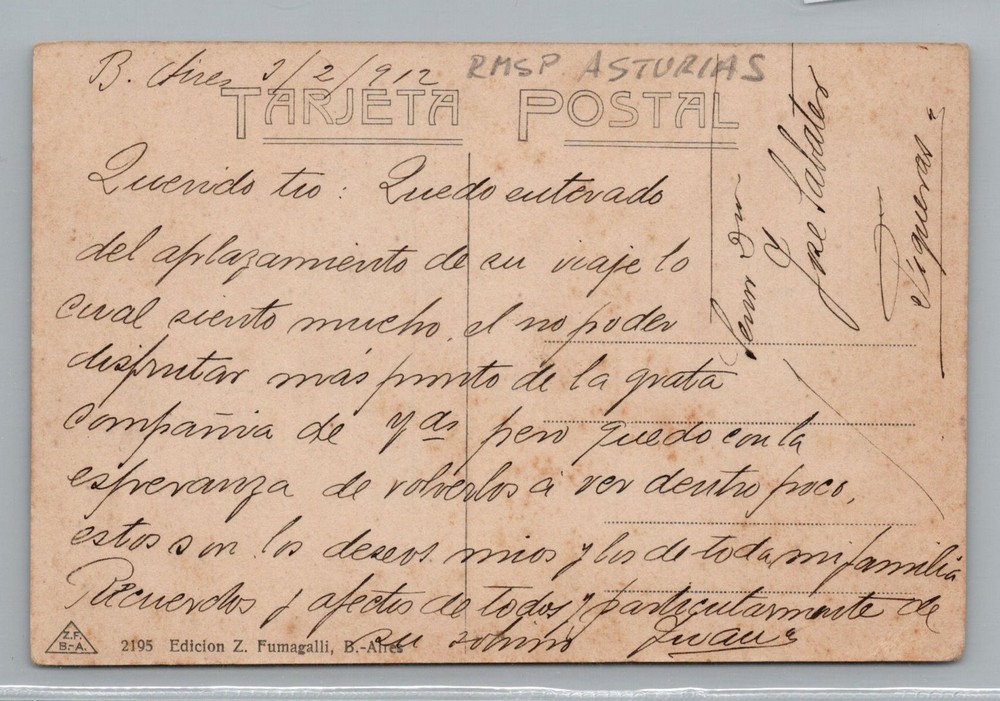 B. Aires 2/2/912
RMSP ASTURIAS
TARJETA POSTAL
Querido tio: Quedo enterado
del aplazamiento de su viaje lo
cual siento mucho, el no poder
disfrutar más pronto de la grata
compañia de Vds pero quedo con la
esperanza de volverlos á ver dentro poco,
estos son los deseos mios y los de toda mi familia
Recuerdos y afectos de todos, y particularmente de
su sobrino Juan
Señor Don
José Sabater
Figueras
Z.F.
B.-A.
2195 Edicion Z. Fumagalli, B.-Aires